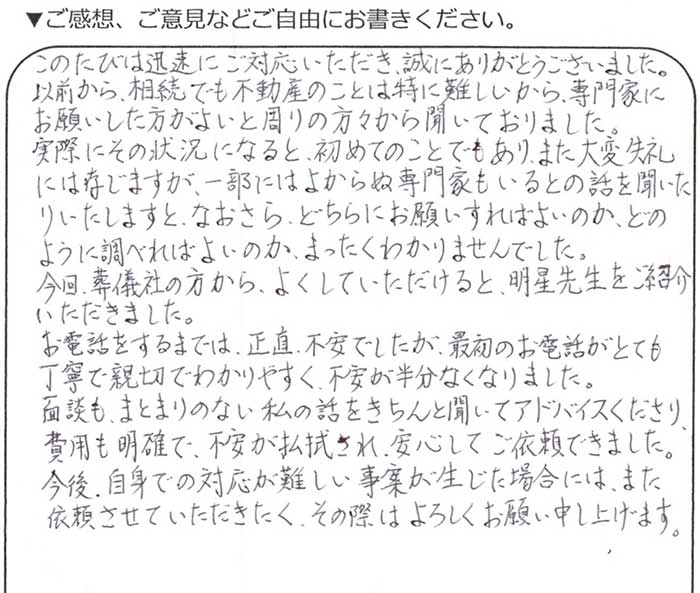 ▼ご感想、ご意見などご自由にお書きください。
このたびは迅速にご対応いただき、誠にありがとうございました。
以前から、相続でも不動産のことは特に難しいから、専門家に
お願いした方がよいと周りの方々から聞いておりました。
実際にその状況になると、初めてのことでもあり、また大変失礼
には存じますが、一部にはよからぬ専門家もいるとの話を聞いた
りいたしますと、なおさら、どちらにお願いすればよいのか、どの
ように調べればよいのか、まったくわかりませんでした。
今回、葬儀社の方から、よくしていただけると、明星先生をご紹介
いただきました。
お電話をするまでは、正直、不安でしたが、最初のお電話がとても
丁寧で親切でわかりやすく、不安が半分なくなりました。
面談も、まとまりのない私の話をきちんと聞いてアドバイスくださり、
費用も明確で、不安が払拭され、安心してご依頼できました。
今後、自身での対応が難しい事案が生じた場合には、また
依頼させていただきたく、その際はよろしくお願い申し上げます。